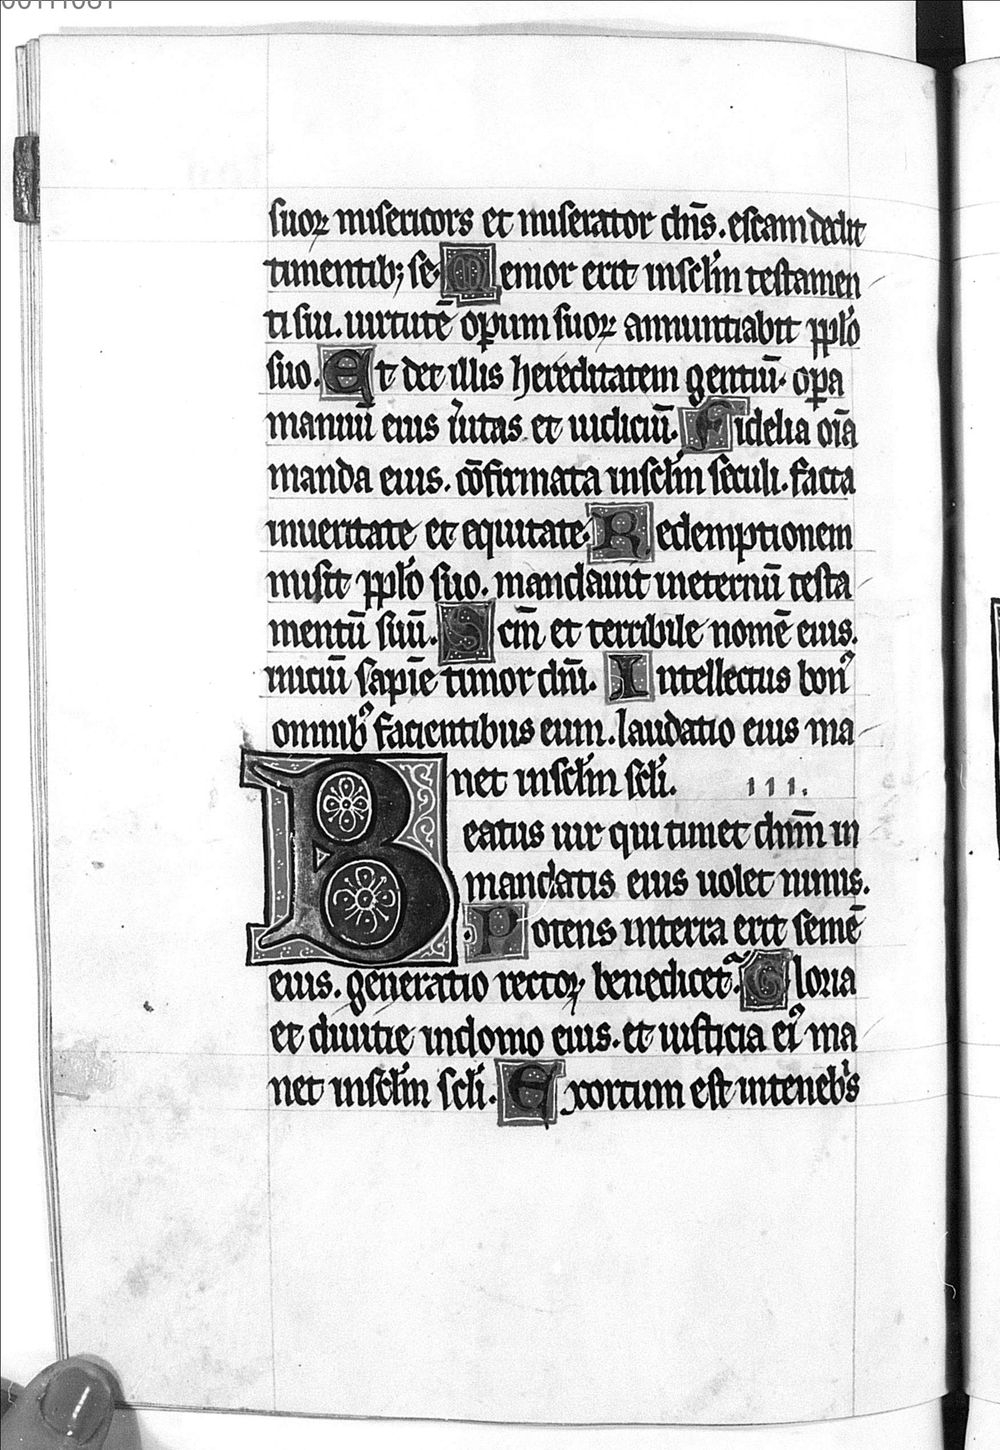 00111081
suoꝝ misericors et miserator dn̄s. escam dedit
timentibꝫ se. Memor erit insclm̄ testamen
ti sui. uirtutē operum suoꝝ annuntiabit pplo
suo. Et det illis hereditatem gentiū. opera
manuū eius ueritas et iudiciū. Fidelia oīa
manda eius. cōfirmata insclm̄ seculi. facta
inueritate et equitate. Redemptionem
misit pplo suo. mandauit ineternū testa
mentū suū. Scm̄ et terribile nomē eius.
iniciū sapiē timor dn̄i. Intellectus bonꝰ
omnibꝰ facientibus eum. laudatio eius ma
net insclm̄ scli. 111.
Beatus uir qui timet dnm̄ in
mandatis eius uolet nimis.
Potens interra erit semē
eius. generatio rectoꝝ benedicet. Gloria
et diuitie indomo eius. et iusticia eiꝰ ma
net insclm̄ scli. Exortum est intenebis